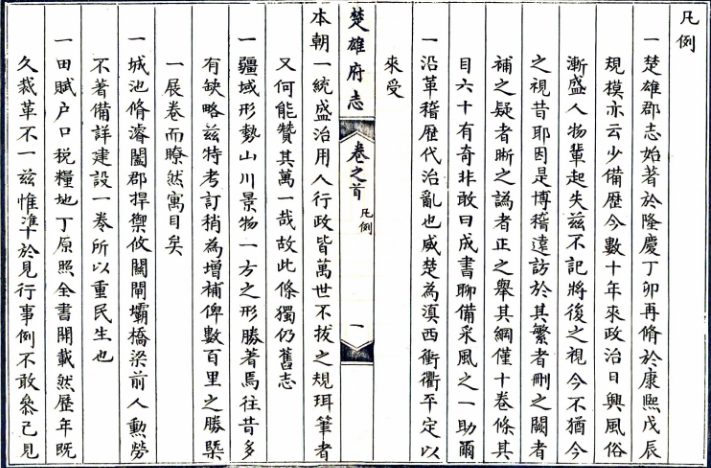 凡例
一楚雄郡志始著於隆慶丁卯再脩於康熙戊辰
規模亦云少備歷今數十年來政治日興風俗
漸盛人物輩起失玆不記將後之視今不猶今
之視昔耶因是博稽遠訪於其繁者刪之闕者
補之疑者晰之譌者正之舉其綱僅十卷條其
目六十有奇非敢曰成書聊備采風之一助爾
一沿革稽歷代治亂也威楚為滇西衝衢平定以
來受
楚雄府志
卷之首
凡例
一
本朝一統盛治用人行政皆萬世不拔之規珥筆者
又何能贊其萬一哉故此條獨仍舊志
一疆域形勢山川景物一方之形勝著焉往昔多
有缺略茲特考訂稍為增補俾數百里之勝槩
一展卷而瞭然寓目矣
一城池脩濬闔郡捍禦攸關閘壩橋梁前人勳勞
不著備詳建設一卷所以重民生也
一田賦户口稅糧地丁原照全書開載然歷年既
久裁革不一茲惟準於見行事例不敢叅己見